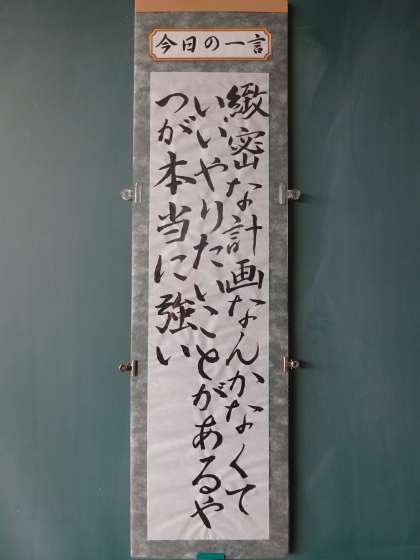 今日の一言
緻密な計画なんかなくて
いいやりたいことがあるや
つが本当に強い